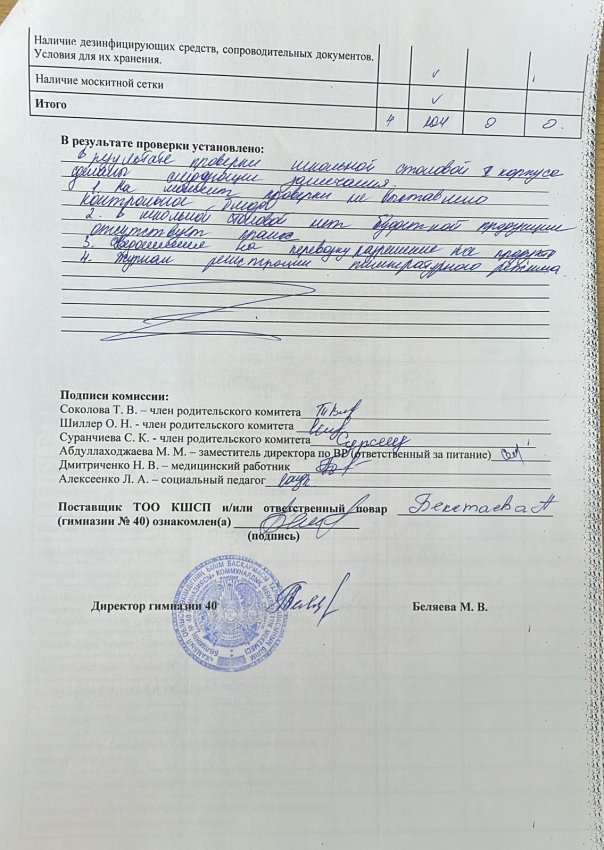 Наличие дезинфицирующих средств, сопроводительных документов.
Условия для их хранения.
Наличие москитной сетки
Итого 4 104 0 0.
В результате проверки установлено:
В результате проверки школьной столовой корпуса
сделаны следующие замечания.
1. На момент проверки не выставлено
контрольное блюдо
2. В школьной столовой нет бюджетной продукции
отсутствует
3. на перевозку, разрешение на продукты
4. Журнал регистрации температурного режима.
Подписи комиссии:
Соколова Т. В. – член родительского комитета
Шиллер О. Н. - член родительского комитета
Суранчиева С. К. - член родительского комитета
Абдуллаходжаева М. М. – заместитель директора по ВР (ответственный за питание)
Дмитриченко Н. В. – медицинский работник
Алексеенко Л. А. – социальный педагог
Поставщик ТОО КШСП и/или ответственный повар Бекетаева А
(гимназии № 40) ознакомлен(а)
(подпись)
Директор гимназии 40 Беляева М. В.